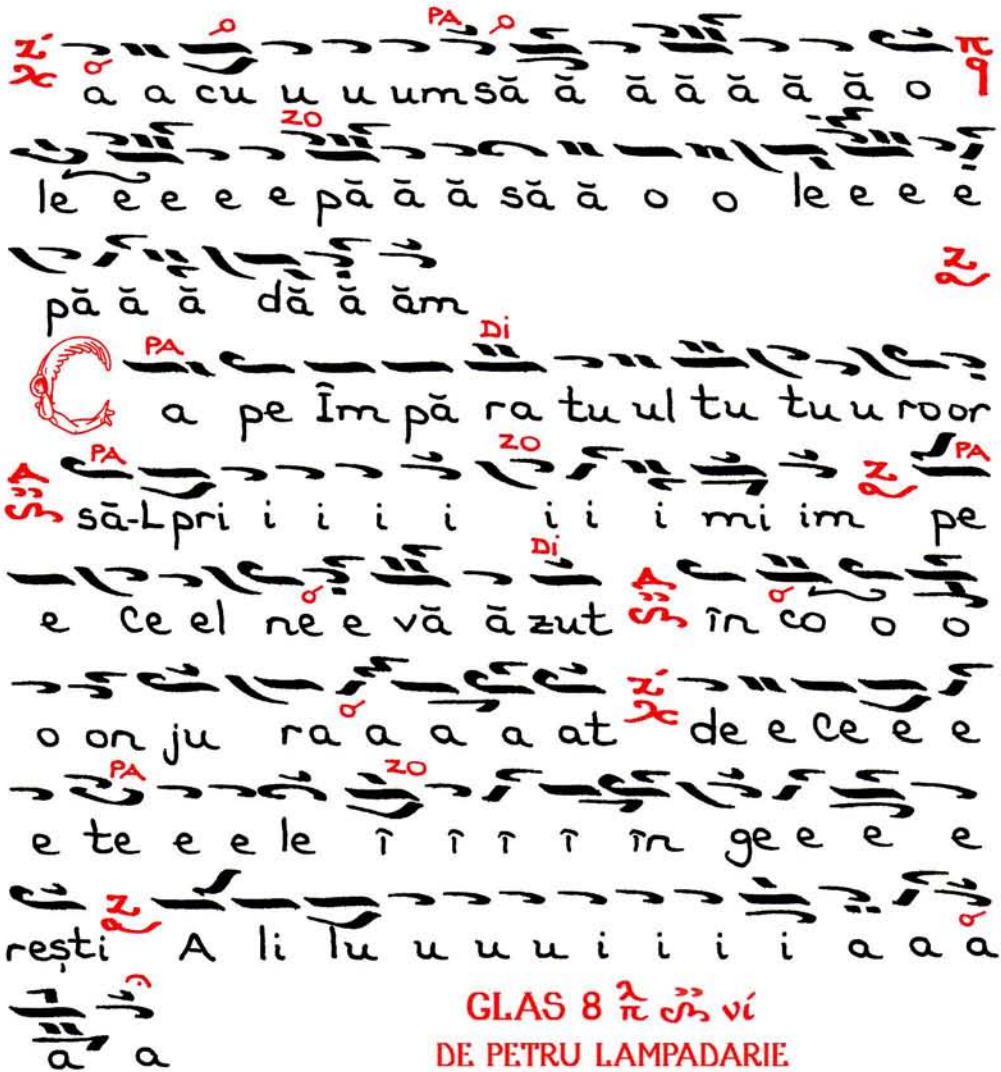 PA
a a cu u u um să ă ă ă ă ă ă o
ZO
le e e e e pă ă ă să ă o o le e e e
pă ă ă dă ă ăm
PA Di
C a pe Îm pă ra tu ul tu tu u ro or
PA ZO PA
să-L pri i i i i i i i mi im pe
Di
e ce el ne e vă ă zut în co o o
o on ju ra a a a at de e ce e e
PA ZO
e te e e le î î î î în ge e e e
rești A li lu u u u i i i i a a a
a a
GLAS 8 λ̈π νί
DE PETRU LAMPADARIE